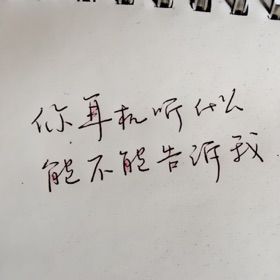 你耳机听什么
能不能告诉我